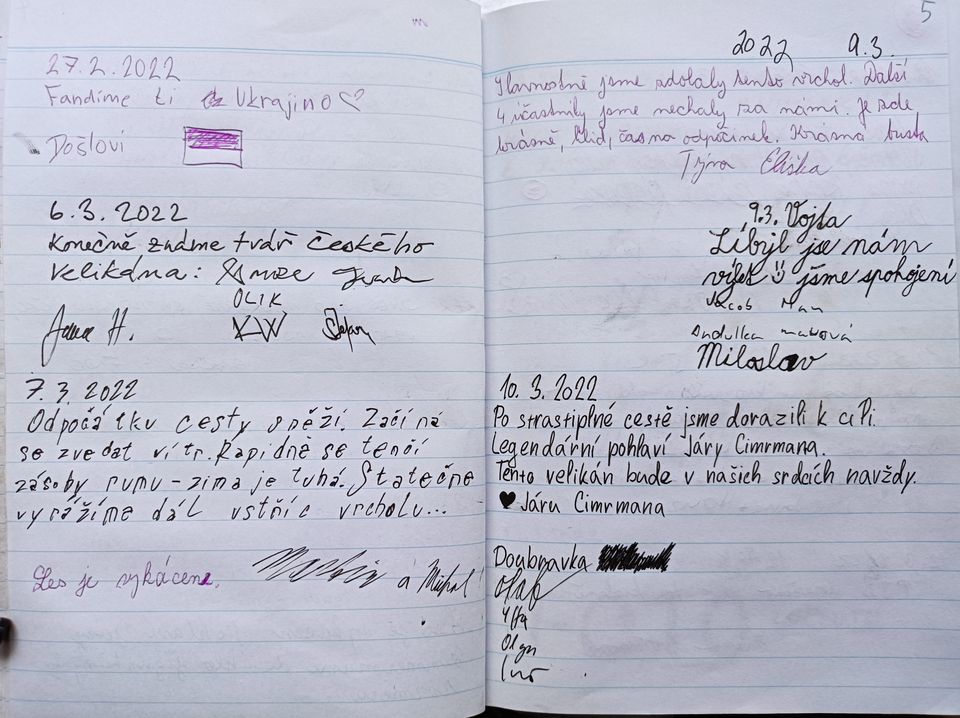 27.2.2022
Fandíme ti Ukrajino
Došlovi
6.3.2022
Konečně známe tvář českého
velikána:
OLIK
Jana H.
7.3.2022
Odpočátku cesty sněží. Začíná
se zvedat vítr. Rapidně se tenčí
zásoby rumu - zima je tuhá. Statečně
vyrážíme dál vstříc vrcholu...
Les je vykácene.
a Michal
5
2022 9.3.
Slavnostně jsme zdolaly tento vrchol. Další
4 účastníky jsme nechaly za námi. Je zde
krásně, klid, čas na odpočinek. Krásná busta
Týna Eliška
9.3. Vojta
Líbyl jse nám
výlet jsme spokojení
Jacob Man
Andulka
Miloslav
10.3.2022
Po strastiplné cestě jsme dorazili k cíli.
Legendární pohlaví Járy Cimrmana.
Tento velikán bude v našich srdcích navždy.
♥ Járu Cimrmana
Doubravka
Olaf
Olga